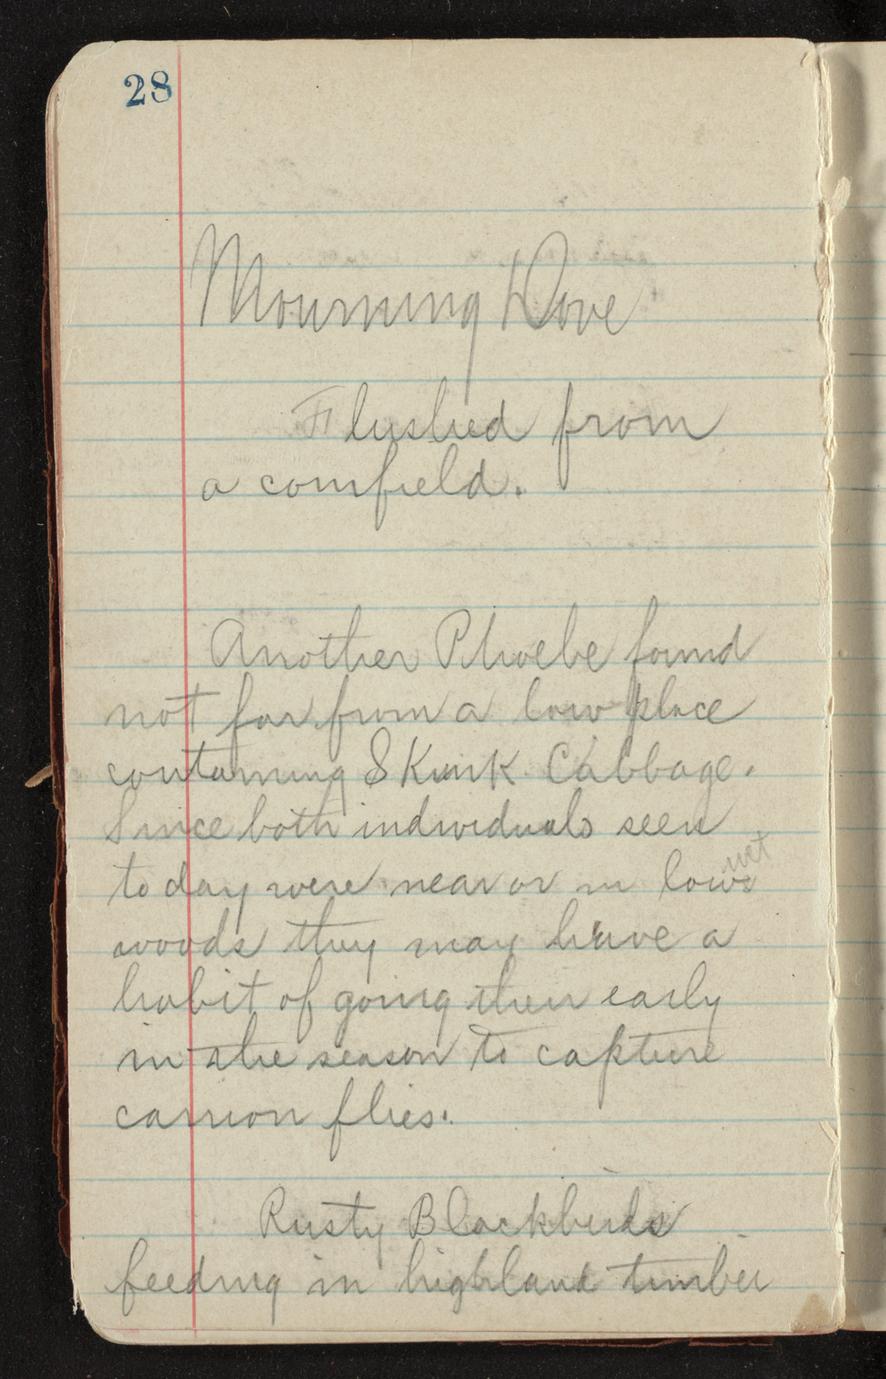 28
Mourning Dove
Flushed from
a cornfield.
Another Phoebe found
not far from a low place
containing Skunk Cabbage.
Since both individuals seen
wet
today were near or in low
woods they may have a
habit of going there early
in the season to capture
carrion flies.
Rusty Blackbirds
feeding in highland timber